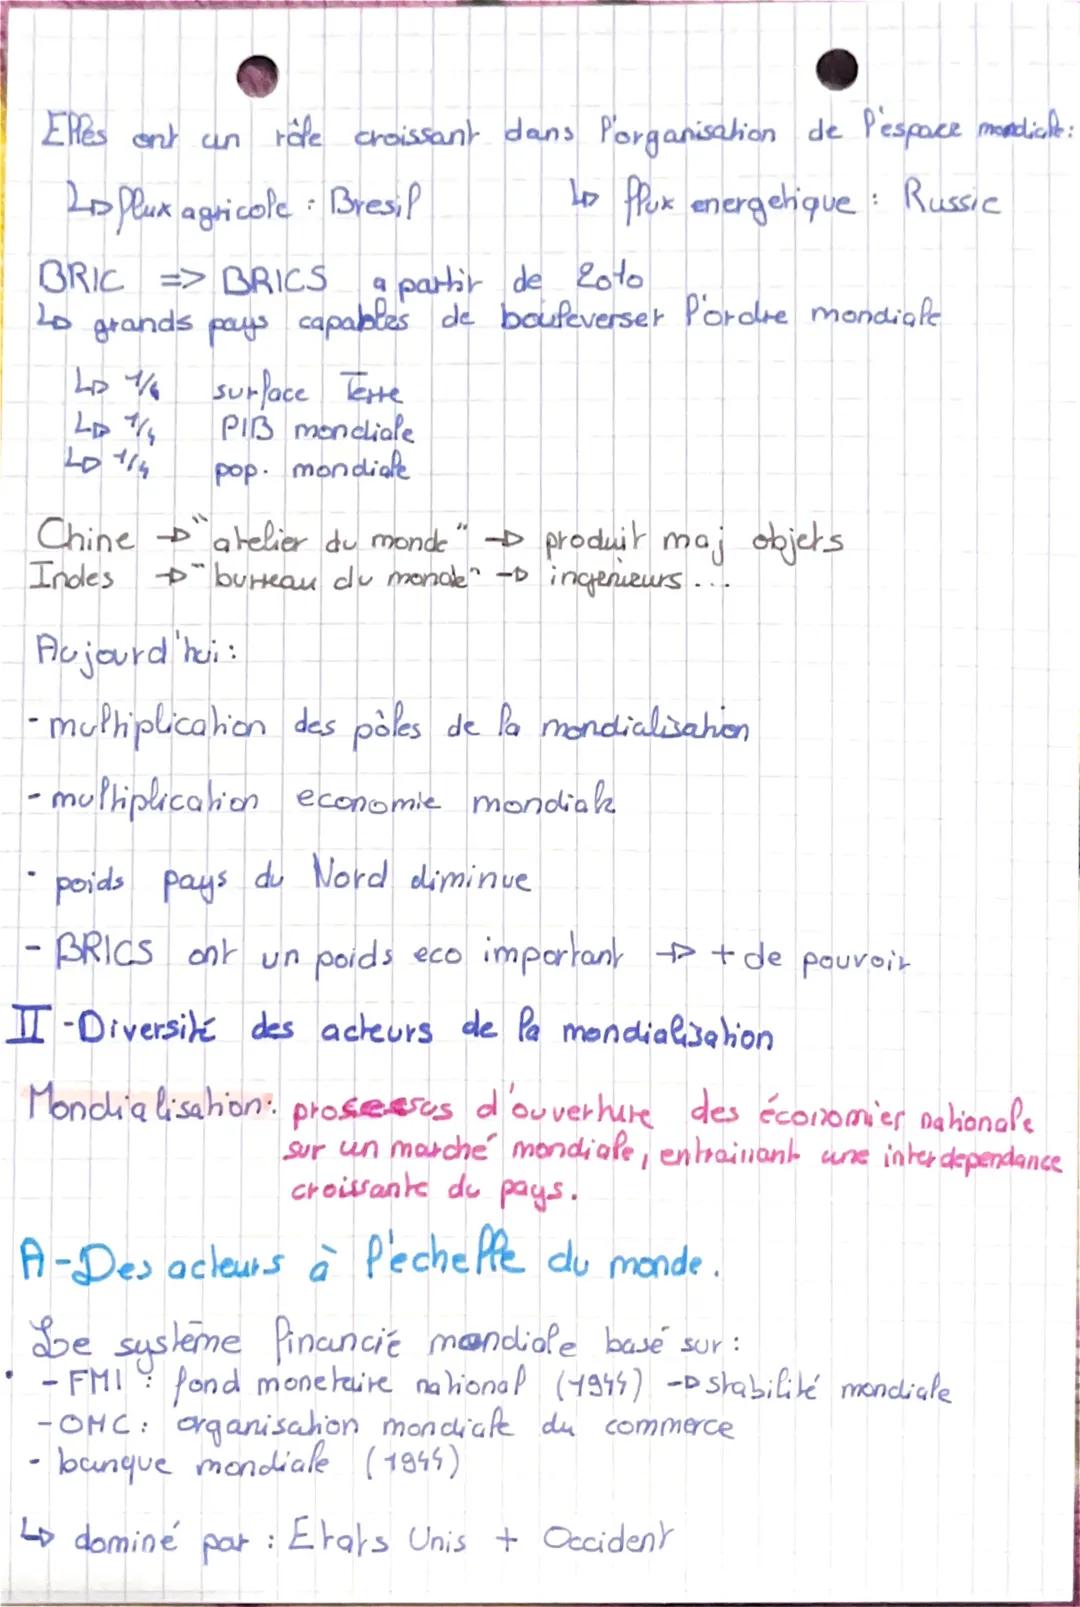 Elles ont un rôle croissant dans l'organisation de l'espace mondiale :
↳ flux agricole : Bresil ↳ flux energetique : Russie
BRIC => BRICS a partir de 2010
↳ grands pays capables de bouleverser l'ordre mondiale
↳ 1/4 surface Terre
↳ 1/4 PIB mondiale
↳ 1/4 pop. mondiale
Chine → "atelier du monde" → produit maj objets
Indes → "burreau du monde" → ingenieurs ...
Aujourd'hui :
- multiplication des pôles de la mondialisation
- multiplication economie mondiale
- poids pays du Nord diminue
- BRICS ont un poids eco important → + de pouvoir
II - Diversité des acteurs de la mondialisation
Mondialisation : processus d'ouverture des économies nationale
sur un marché mondiale, entrainant une interdependance
croissante du pays.
A - Des acteurs à l'echelle du monde.
Le système financié mondiale basé sur :
- FMI : fond monetaire national (1944) → stabilité mondiale
- OMC : organisation mondiale du commerce
- banque mondiale (1944)
↳ dominé par : Etats Unis + Occident